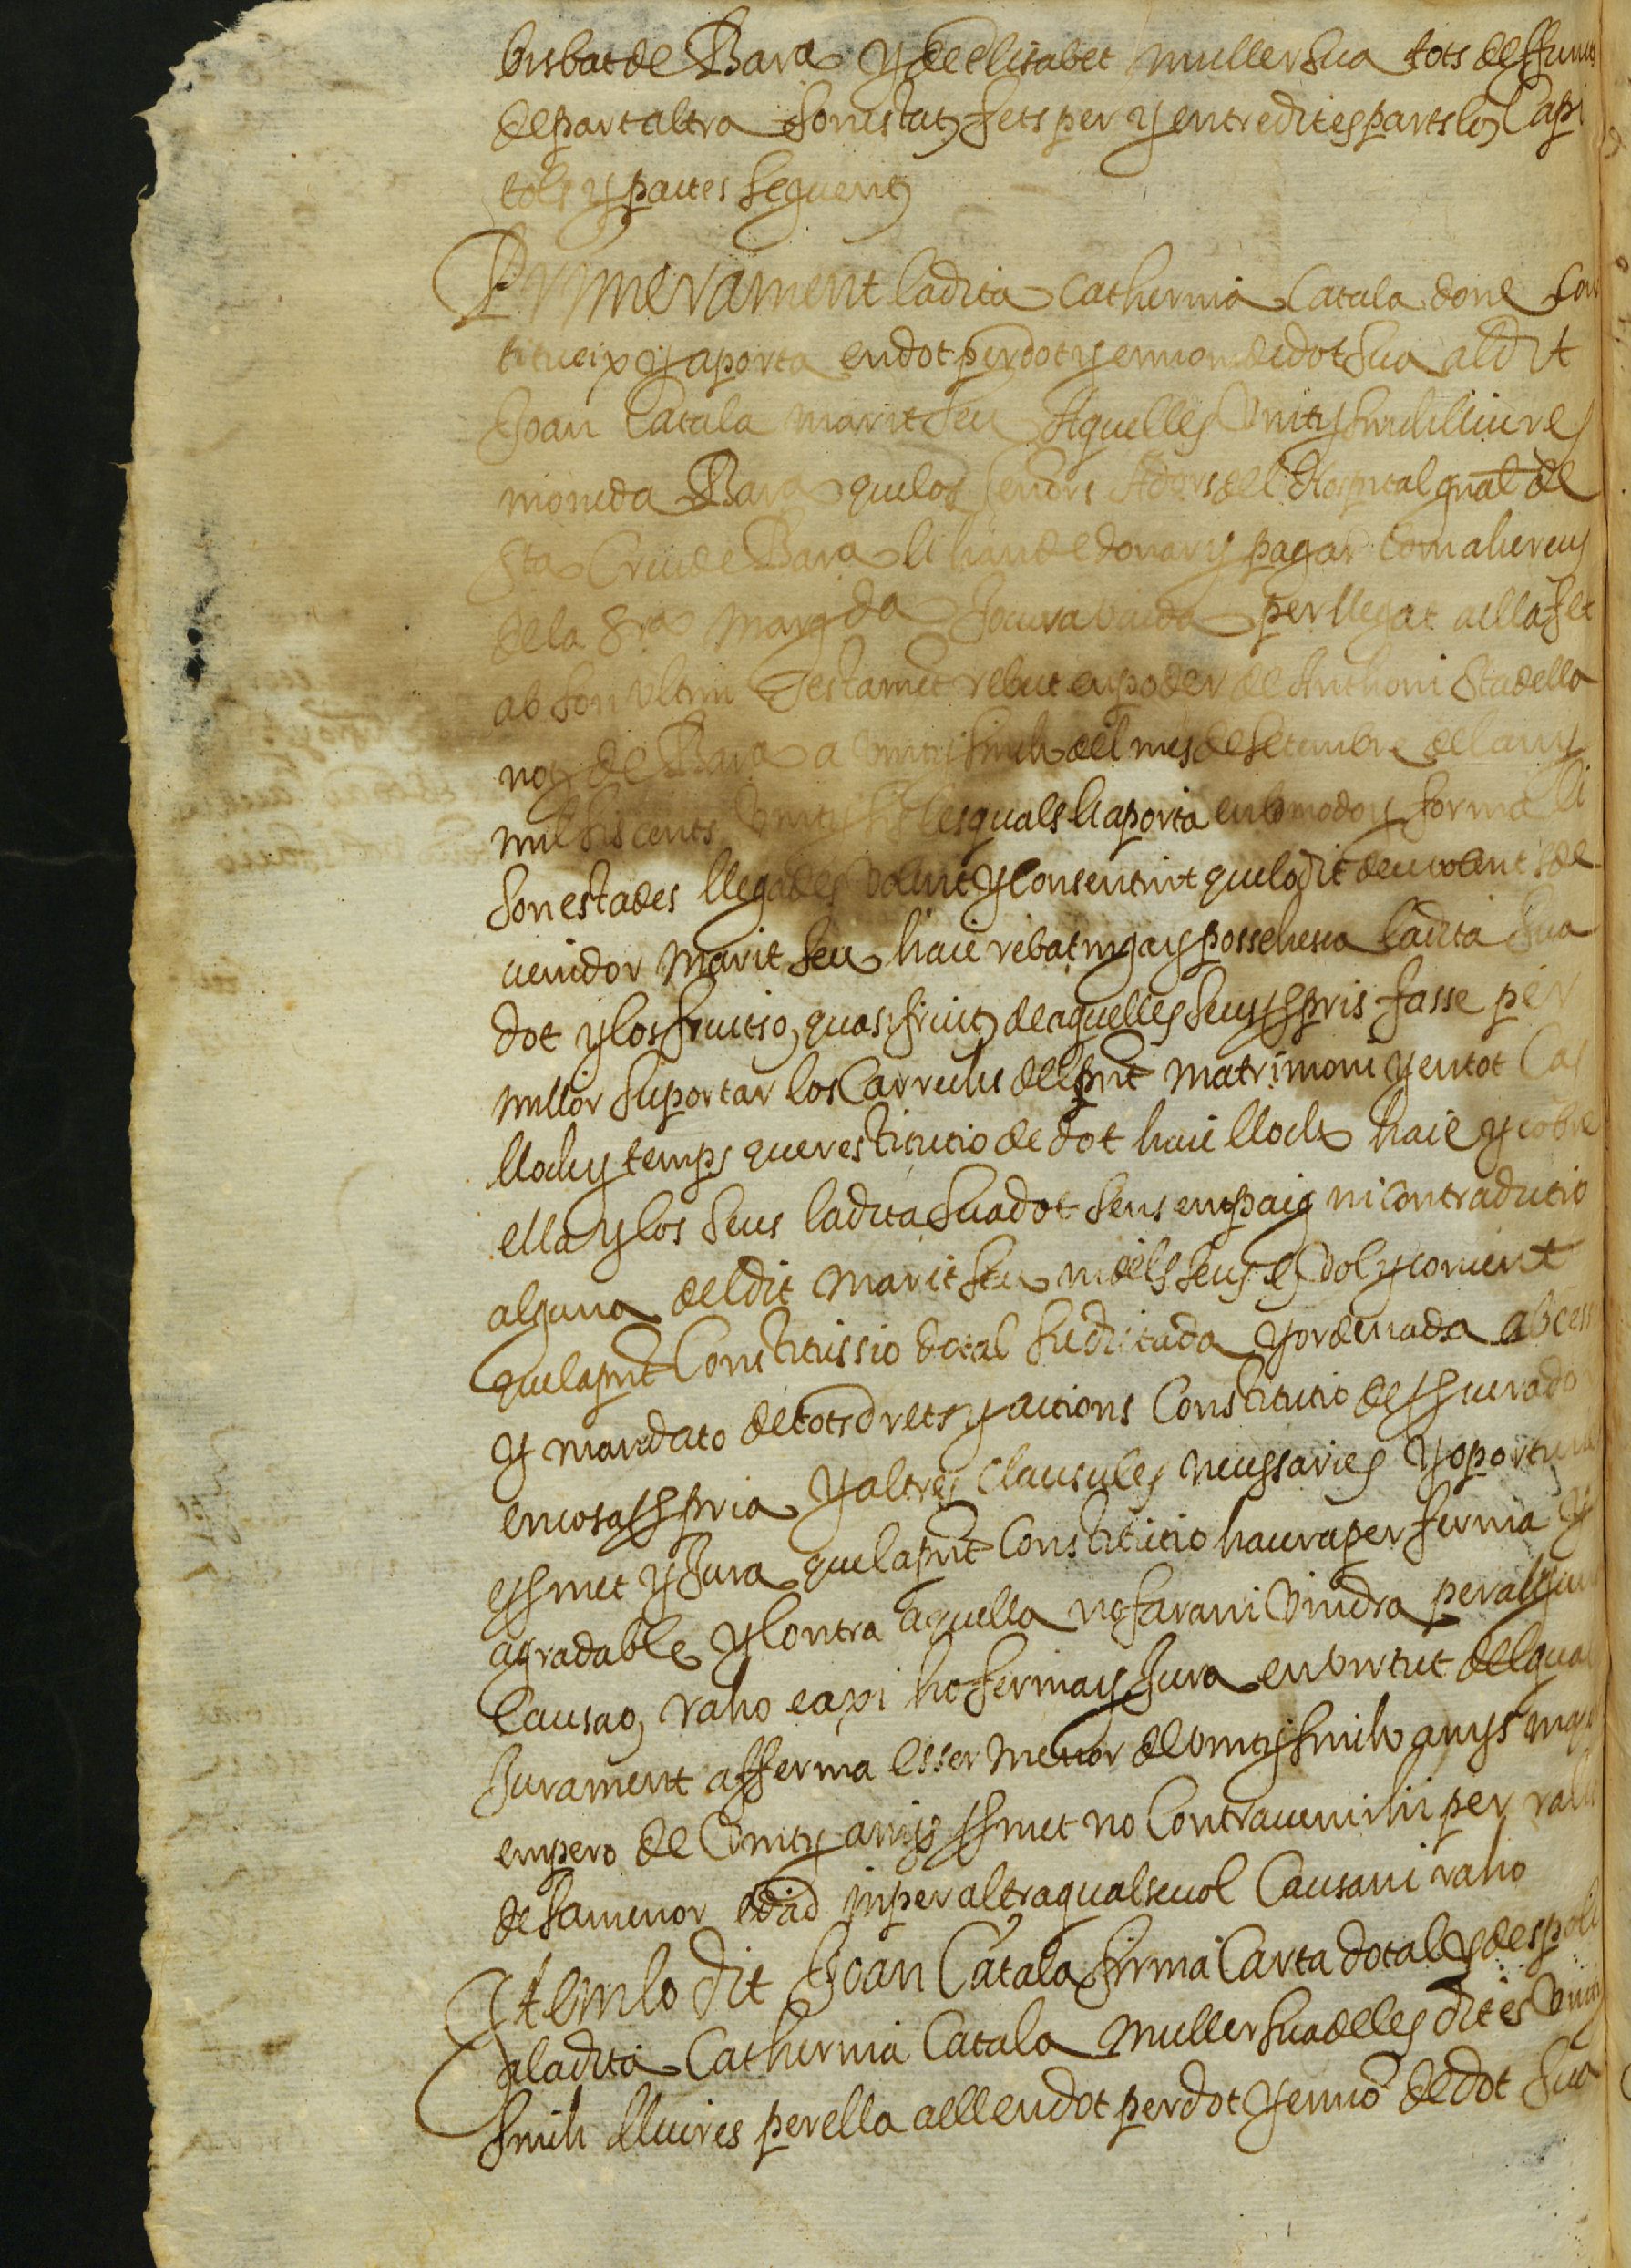 bisbat de Bara y de Elisabet muller sua tots deffuncts
de part altra son estats fets per y entre dites parts los Capi
tols y pactes seguents
Primerament la dita Catherina Catala done cons
titueix y aporta en dot per dot y en nom de dot sua al dit
Joan Catala marit seu Aquelles vint y sinch lliures
moneda Bara que los senors Adors del Hospital gnal de
Sta Creu de Bara li han de donar y pagar com a hereus
de la Sra Margda viuda per llegat a ella fet
ab son ultim Testament rebut en poder de Anthoni Stadella
noy de Bara a vint y sinch del mes de Setembre del any
mil siscents vint y les quals li aporta en lo modo y forma li
son estades llegades volent y consentint que lo dit deu volent sde
venidor marit seu haie reba tinga y possehesca la dita sua
dot y los fruits o, quasi fruits de aquelles seus ppris fasse per
millor suportar los Carrechs del pnt matrimoni y en tot Cas
lloch y temps que restitucio de dot haie lloch haie y cobre
ella y los seus la dita sua dot sens empaig ni contradictio
alguna del dit marit seu ni dels seus e vol y convent
que la pnt Constitussio dotal sie dictada y ordenada ab cessio
y mandato de tots drets y actions Constitutio de pcurador
en cosa ppria y altres clausules necessaries y oportunes
e pmet y Jura que la pnt Constitutio haura per ferma y
agradable y Contra aquella no fara ni vindra per alguna
Causa o, raho e axi ho ferma y Jura en virtut del qual
Jurament afferma esser menor de vint y sinch anys major
empero de vint anys pmet no Contravenir hi per raho
de sa menor edad ni per altra qualsevol Causa ni raho
Item lo dit Joan Catala firma Carta dotal y de espoli
a la dita Catherina Catala muller sua de les dites vint y
sinch lliures per ella a ell en dot per dot y en no de dot sua